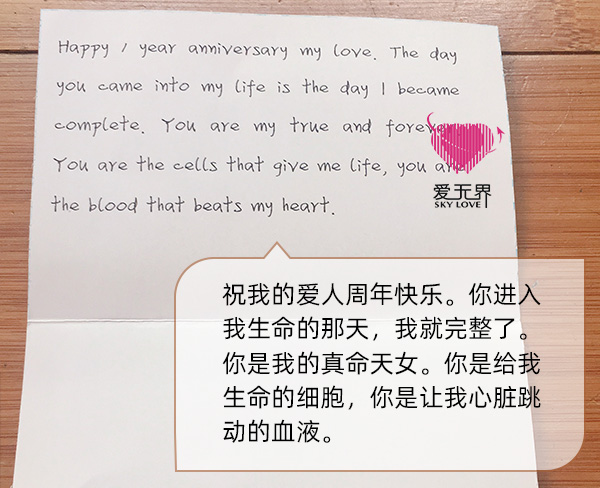 Happy 1 year anniversary my love. The day
you came into my life is the day I became
complete. You are my true and forever
You are the cells that give me life, you are
the blood that beats my heart.
爱无界
SKY LOVE
祝我的爱人周年快乐。你进入
我生命的那天，我就完整了。
你是我的真命天女。你是给我
生命的细胞，你是让我心脏跳
动的血液。